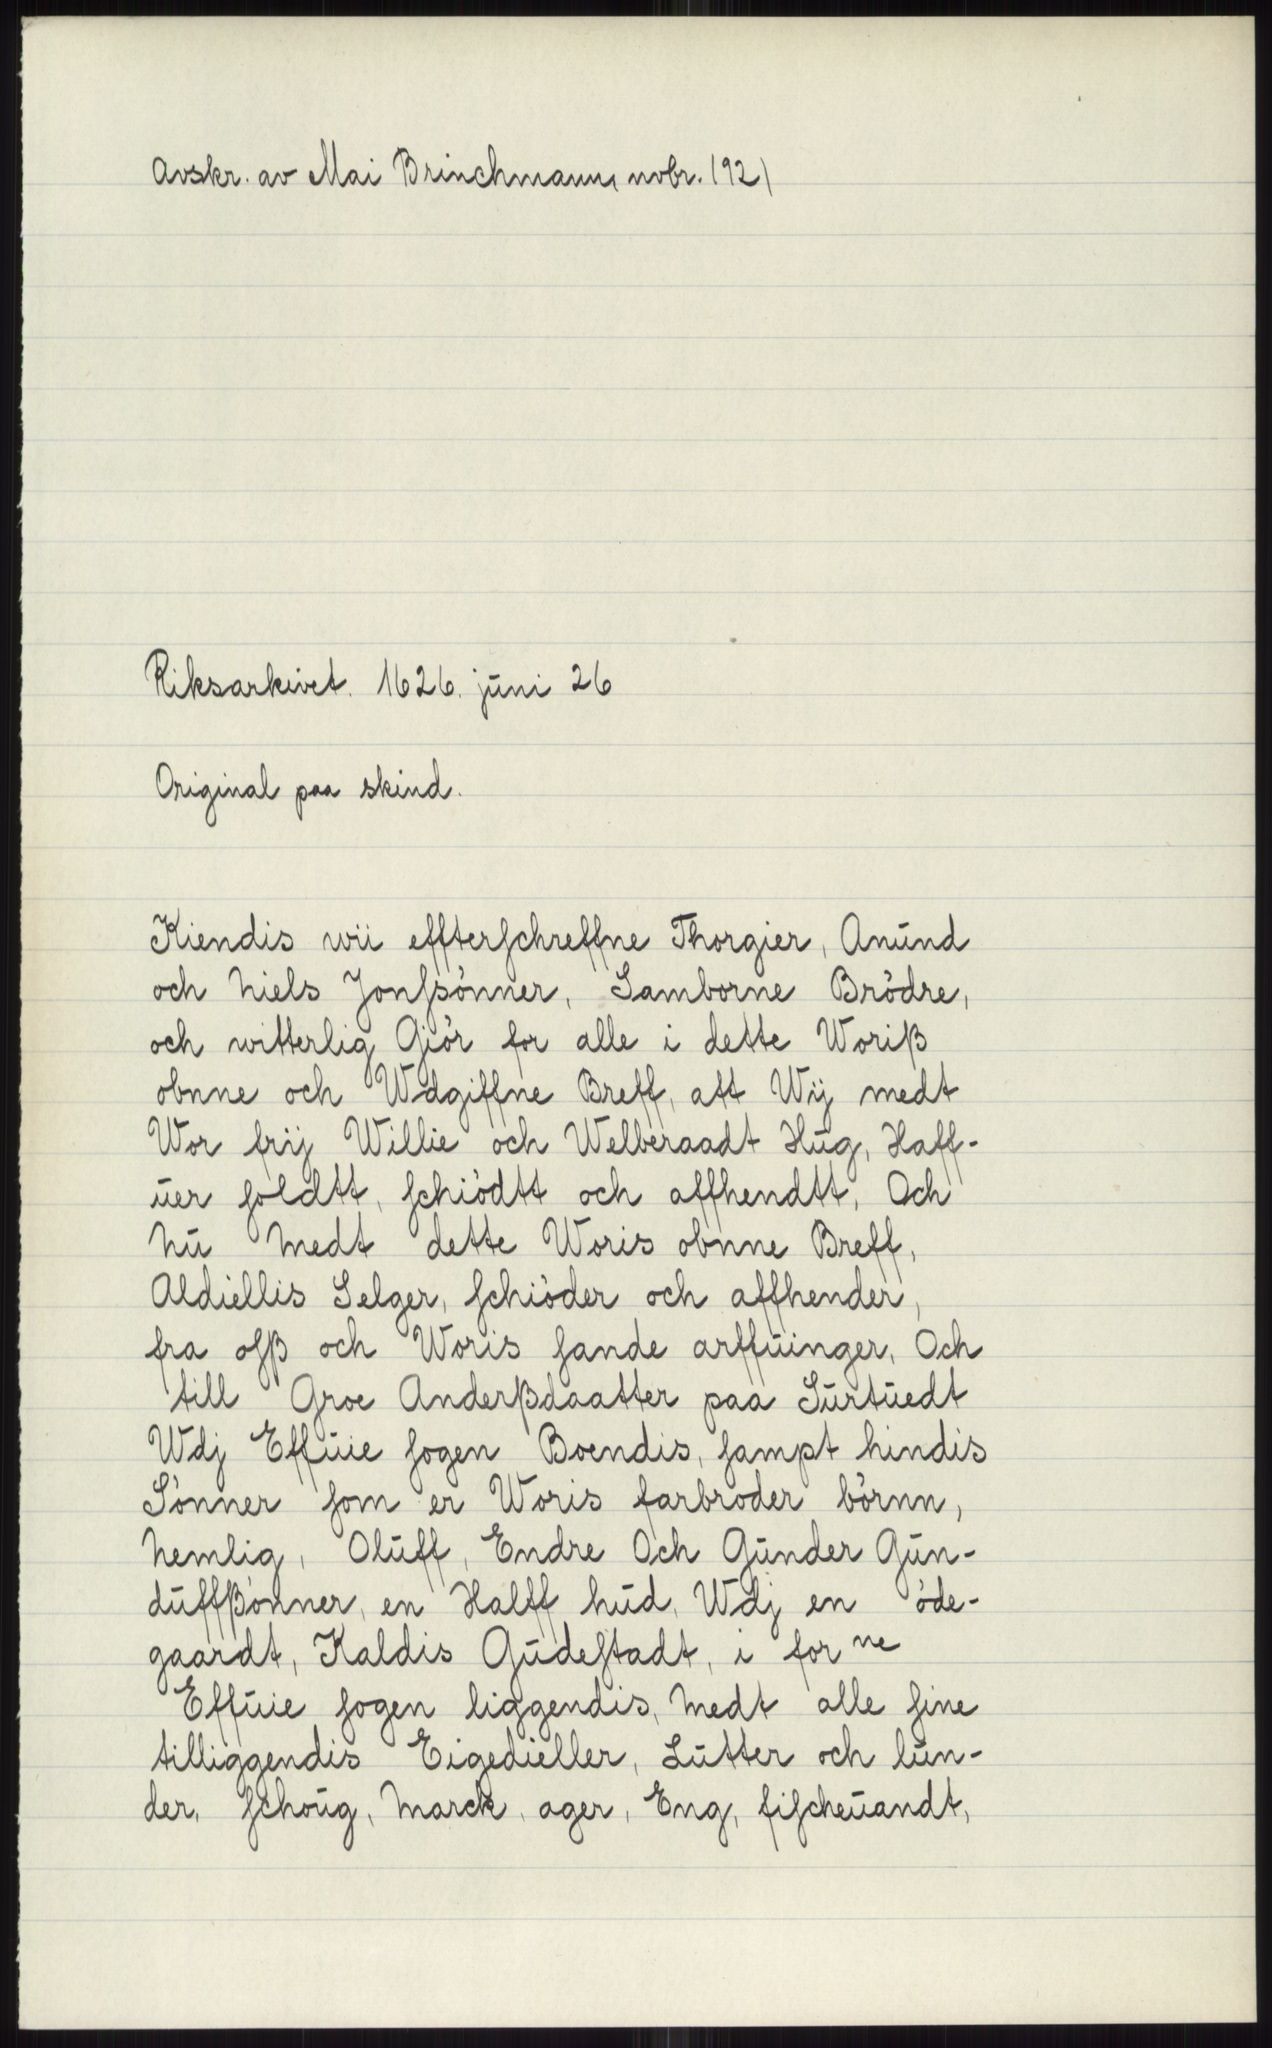 Avskr. av Mai Brinchmann, novbr. 1921
Riksarkivet. 1626. juni 26
Original paa skind.
Kiendis wii effterſchreffne Thorgier, Anund
och Niels Jonſsönner, Samborne Brödre,
och witterlig Giör for alle i dette Woriß
obnne och Wdgiffne Breff, att Wij medt
Wor frij Willie och Welberaadt Hug, Haff-
uer ſoldtt, ſchiödtt och affhendtt, Och
Nu Medt dette Woris obnne Breff,
Aldiellis Selger, ſchiöder och affhender,
fra oſß och Woris ſande arffuinger, Och
till Groe Anderßdaatter paa Surtuedt
Wdj Effuie ſogen Boendis, ſampt hindis
Sönner ſom er Woris farbroder börnn,
Nemlig, Oluff, Endre Och Gunder Gun-
duffßönner, en Halff hud, Wdj en öde-
gaardt, Kaldis Gudeſtadt, i for ne
Effuie ſogen liggendis, Medt alle ſine
tilliggendis Eigedieller, Lutter och lun-
der, ſchoug, Marck, ager, Eng, fiſcheuandt,